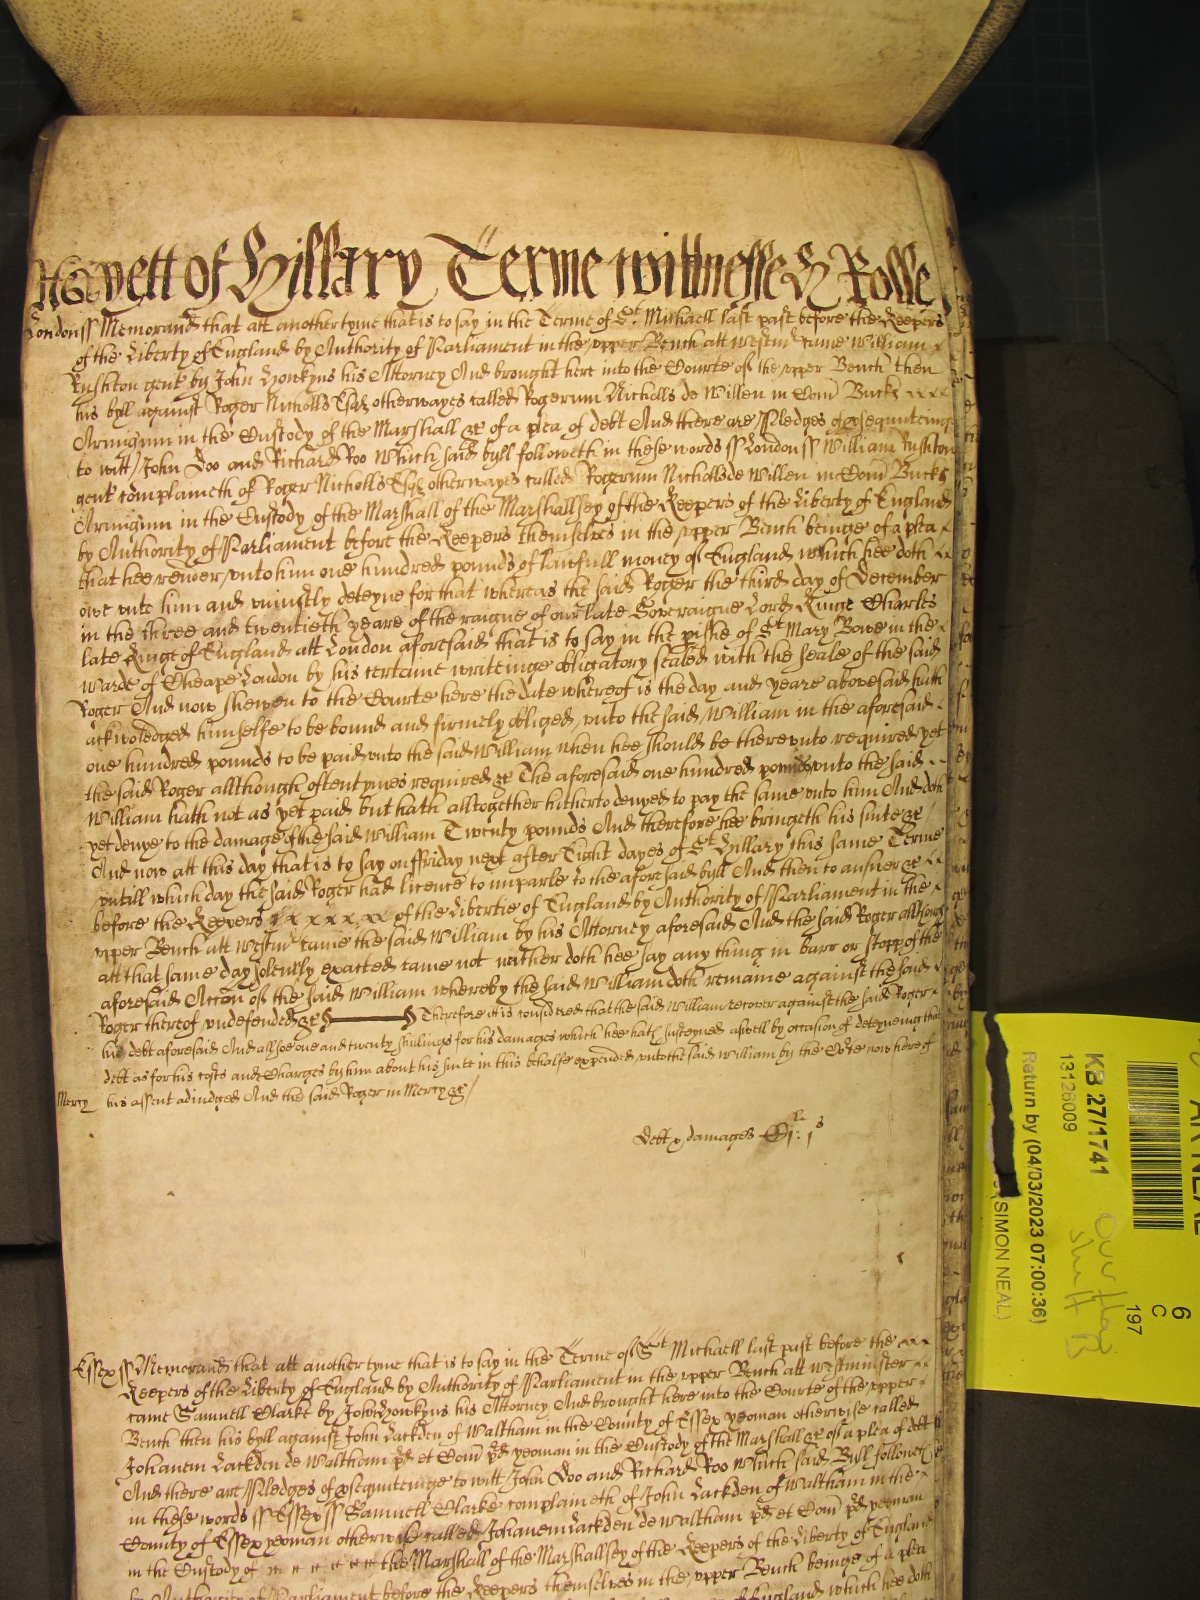 yett of Hillary Terme wittnesseth Rolle
London ss Memorand that att another tyme that is to say in the Terme of St Michaell last past before the Keepers
of the Liberty of England by Authority of Parliament in the upper Bench att Westmr came William
Rushton gent by John Howkyns his Attorney And brought here into the Courte of the upper Bench then
his byll against Roger Nicholls Esqr otherwayes called Rogerum Nicholls de Willen in Com Bucks
Armigum in the Custody of the Marshall &c of a plea of debt And there are Pledges of psequuteinge
to witt John Doo and Richard Roo Which said byll followeth in these words ss London ss William Rushton
gent complaineth of Roger Nicholls Esqr otherwayes called Rogerum Nicholls de Willen in Com Bucks
Armigum in the Custody of the Marshall of the Marshallsey of the Keepers of the Liberty of England
by Authority of Parliament before the Keepers themselves in the upper Bench beinge of a plea
that hee render unto him one hundred pounds of lawfull money of England which hee doth
owe unto him and uniustly deteyne for that whereas the said Roger the third day of December
in the three and twentieth yeare of the raigne of our late Soveraigne Lord Kinge Charles
late Kinge of England att London aforesaid that is to say in the pishe of St Mary Bowe in the
Warde of Cheape London by his certaine writeinge obligatory sealed with the seale of the said
Roger And now shewen to the Courte here the date whereof is the day and yeare abovesaid hath
acknowledged himselfe to be bound and firmely obliged unto the said William in the aforesaid
one hundred pounds to be paid unto the said William when hee should be thereunto required yet
the said Roger allthough oftentymes required &c The aforesaid one hundred pounds unto the said
William hath not as yet paid but hath alltogether hitherto denyed to pay the same unto him And doth
yet denye to the damage of the said William Twenty pounds And therefore hee bringeth his suite &c
And now att this day that is to say on ffriday next after Eight dayes of St Hillary this same Terme
untill which day the said Roger had licence to imparle to the aforesaid byll And then to answer &c
before the Keepers x x x x x x of the Libertie of England by Authority of Parliament in the
upper Bench att Westmr came the said William by his Attorney aforesaid And the said Roger allthough
att that same day solemly exacted came not neither doth hee say any thing in barr or stopp of the
aforesaid Accon of the said William whereby the said William doth remaine against the said
Roger thereof undefended &c Therefore it is considered that the said William recover against the said Roger
his debt aforesaid And allsoe one and twenty shillings for his damages which hee hath susteyned aswell by occasion of deteyneing that
debt as for his costs and Charges by him about his suite in this behalfe expended unto the said William by the Corte now here of
Mercy his assent adiudged And the said Roger in Mercy &c
Debt & damages Cjli: js
Essex ss Memorand that att another tyme that is to say in the Terme of St Michaell last past before the
Keepers of the Liberty of England by Authority of Parliament in the upper Bench att Westminster
came Samuell Clarke by John Howkyns his Attorney And brought here into the Courte of the upper
Bench then his byll against John Lackden of Waltham in the County of Essex yeoman otherwise called
Johanem Lackden de Waltham pd et Com pd yeoman in the Custody of the Marshall &c of a plea of debt
And there are Pledges of psequuteinge to witt John Doo and Richard Roo Which said Byll followeth
in these words ss Essex ss Samuell Clarke complaineth of John Lackden of Waltham in the
County of Essex yeoman otherwise called Johanem Lackden de Waltham pd et Com pd yeoman
in the Custody of the Marshall of the Marshallsey of the Keepers of the Liberty of England
by Authority of Parliament before the Keepers themselves in the upper Bench beinge of a plea
of England which hee doth
KB 27/1741
13126009
Return by (04/03/2023 07:00:36)
(SIMON NEAL)
6
C
197